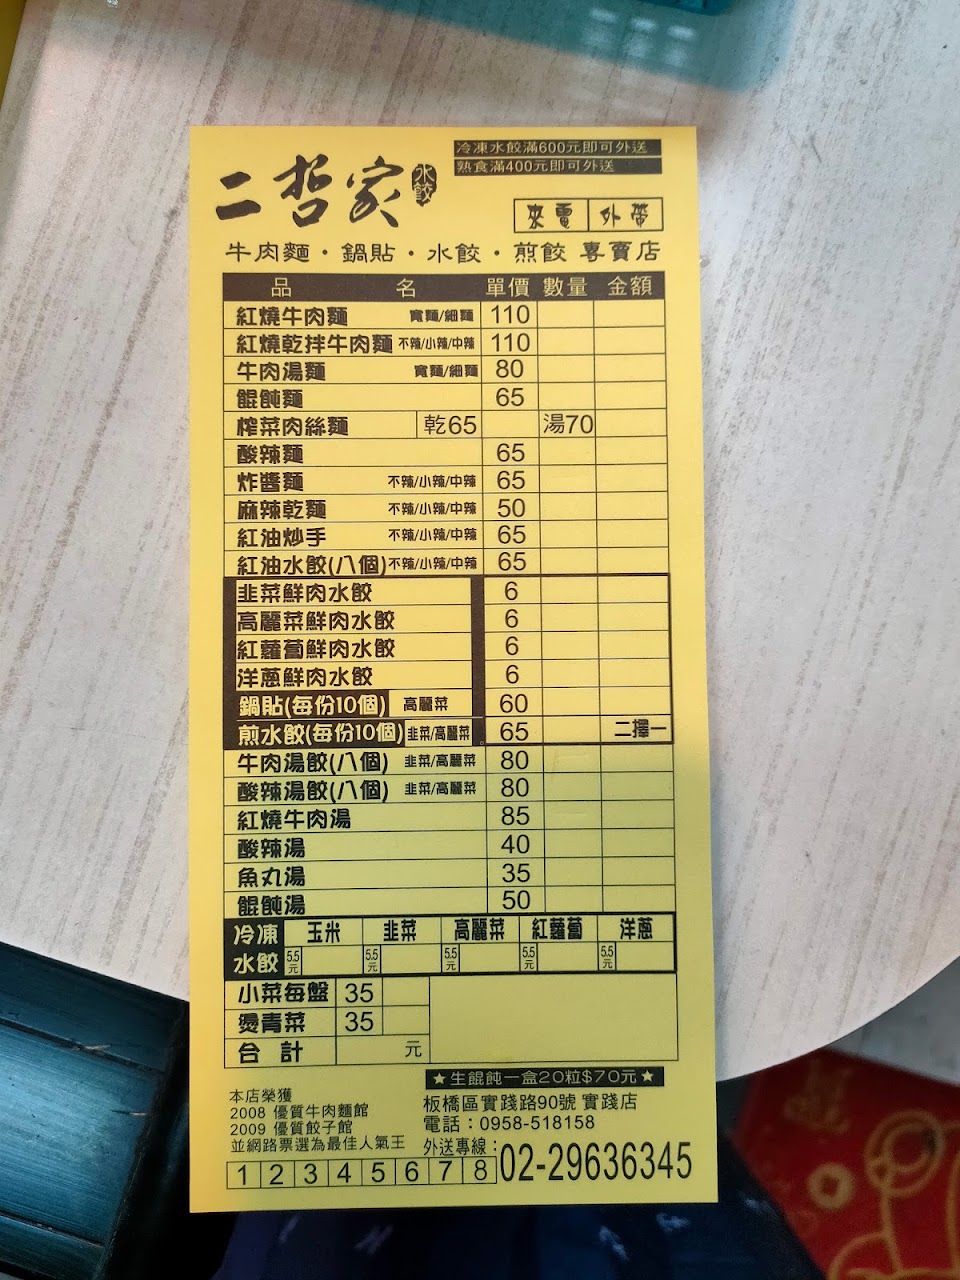 冷凍水餃滿600元即可外送
熟食滿400元即可外送
二哲家 水餃
來電 外帶
牛肉麵・鍋貼・水餃・煎餃 專賣店
品 名 單價 數量 金額
紅燒牛肉麵 寬麵/細麵 110
紅燒乾拌牛肉麵 不辣/小辣/中辣 110
牛肉湯麵 寬麵/細麵 80
餛飩麵 65
榨菜肉絲麵 乾65 湯70
酸辣麵 65
炸醬麵 不辣/小辣/中辣 65
麻辣乾麵 不辣/小辣/中辣 50
紅油炒手 不辣/小辣/中辣 65
紅油水餃(八個) 不辣/小辣/中辣 65
韭菜鮮肉水餃 6
高麗菜鮮肉水餃 6
紅蘿蔔鮮肉水餃 6
洋蔥鮮肉水餃 6
鍋貼(每份10個) 高麗菜 60
煎水餃(每份10個) 韭菜/高麗菜 65 二擇一
牛肉湯餃(八個) 韭菜/高麗菜 80
酸辣湯餃(八個) 韭菜/高麗菜 80
紅燒牛肉湯 85
酸辣湯 40
魚丸湯 35
餛飩湯 50
冷凍 玉米 韭菜 高麗菜 紅蘿蔔 洋蔥
水餃 5.5元 5.5元 5.5元 5.5元 5.5元
小菜每盤 35
燙青菜 35
合計 元
★生餛飩一盒20粒$70元★
本店榮獲
2008 優質牛肉麵館
2009 優質餃子館
並網路票選為最佳人氣王
1 2 3 4 5 6 7 8
板橋區實踐路90號 實踐店
電話：0958-518158
外送專線：02-29636345